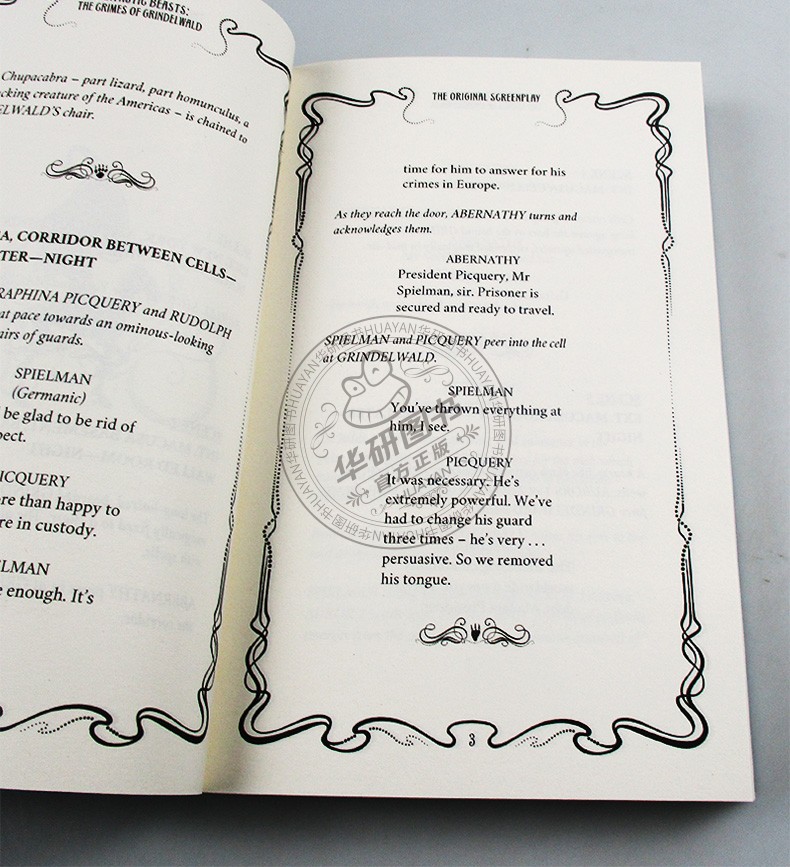 TASTIC BEASTS:
THE CRIMES OF GRINDELWALD
Chupacabra – part lizard, part homunculus, a
cking creature of the Americas – is chained to
ELWALD'S chair.
A, CORRIDOR BETWEEN CELLS—
TER—NIGHT
RAPHINA PICQUERY and RUDOLPH
at pace towards an ominous-looking
airs of guards.
SPIELMAN
(Germanic)
be glad to be rid of
pect.
ICQUERY
re than happy to
re in custody.
ELMAN
e enough. It's
THE ORIGINAL SCREENPLAY
time for him to answer for his
crimes in Europe.
As they reach the door, ABERNATHY turns and
acknowledges them.
ABERNATHY
President Picquery, Mr
Spielman, sir. Prisoner is
secured and ready to travel.
SPIELMAN and PICQUERY peer into the cell
at GRINDELWALD.
SPIELMAN
You've thrown everything at
him, I see.
PICQUERY
It was necessary. He's
extremely powerful. We've
had to change his guard
three times – he's very . . .
persuasive. So we removed
his tongue.
3
华研图书
官方正版
HUAYAN
华研图书HUAYAN华研图书HUAYAN华研图书HUAYAN华研图书HUAYAN